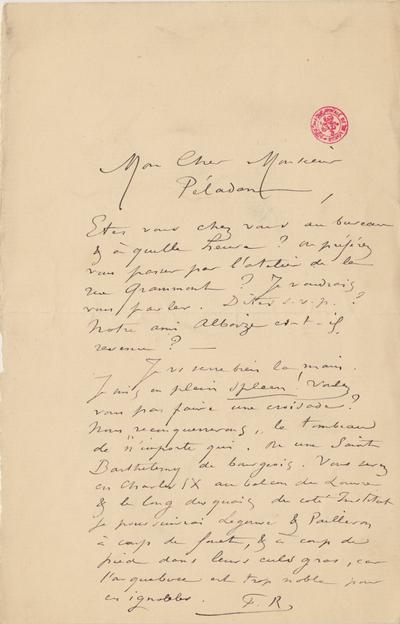 Mon Cher Monsieur
Péladan,
Etes vous chez vous au bureau
& à quelle heure ? ou préférez
vous passer par l'atelier de la
rue Grammont ? Je voudrais
vous parler. Dites s.v.p. ?
Notre ami Alboize est-il
revenu ? —
Je vs serre bien la main.
Je suis en plein spleen ! Voulez
vous pas faire une croisade ?
Nous reconquerrons, le tombeau
de "n'importe qui. Ou une Saint
Barthelemy de bourgeois. Vous serez
en Charles IX au balcon du Louvre
& le long des quais du coté Institut
je poursuivrai Legouvé & Pailleron
à coups de fouet, & à coups de
pieds dans leurs culs gras, car
l'arquebuse est trop noble pour
ces ignobles. F. R